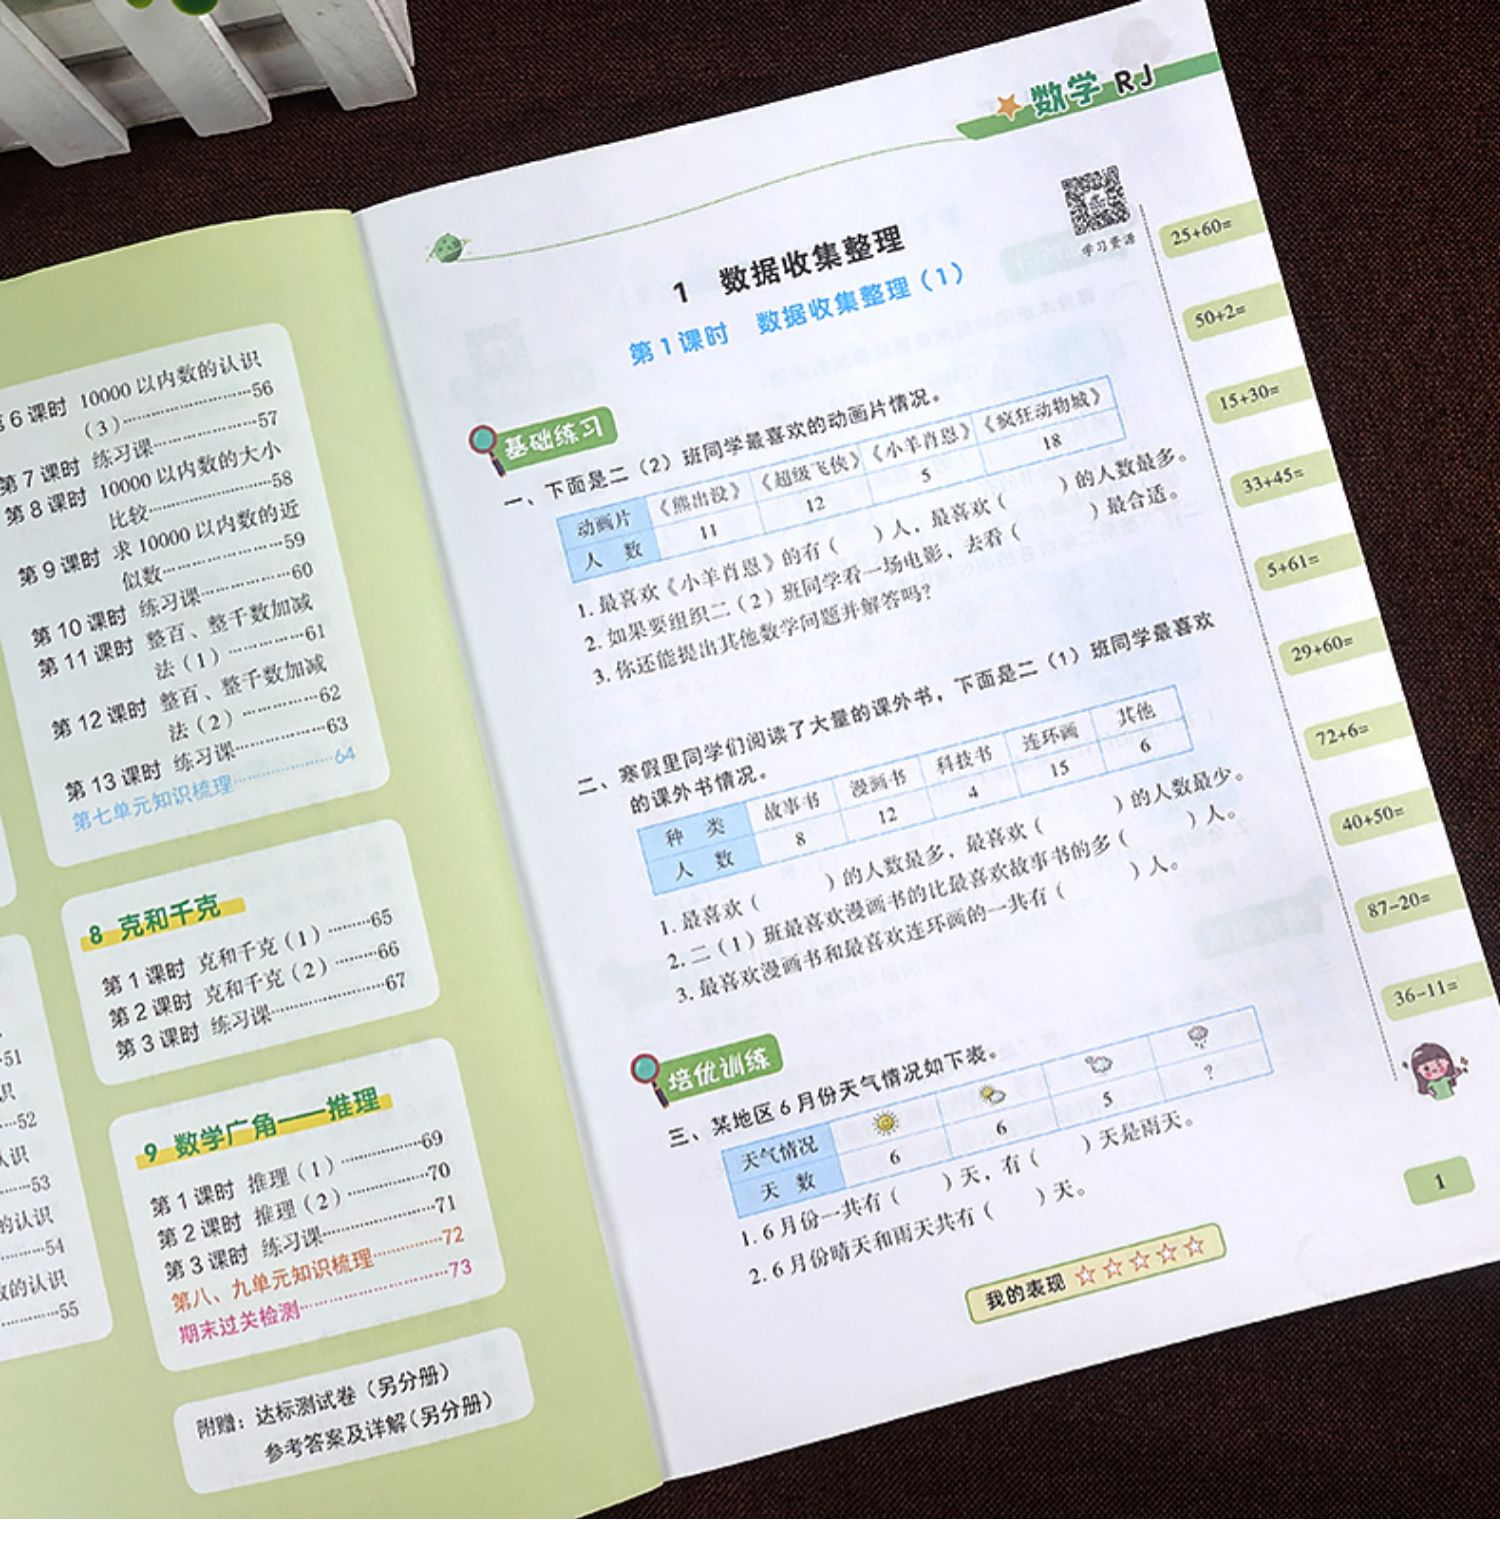 第6课时 10000以内数的认识
（3）…………………………56
第7课时 练习课…………………57
第8课时 10000以内数的大小
比较……………………58
第9课时 求10000以内数的近
似数……………………59
第10课时 练习课………………60
第11课时 整百、整千数加减
法（1）……………61
第12课时 整百、整千数加减
法（2）……………62
第13课时 练习课………………63
第七单元知识梳理………………64
8 克和千克
第1课时 克和千克（1）………65
第2课时 克和千克（2）………66
第3课时 练习课…………………67
9 数学广角——推理
第1课时 推理（1）……………69
第2课时 推理（2）……………70
第3课时 练习课…………………71
第八、九单元知识梳理…………72
期末过关检测……………………73
附赠：达标测试卷（另分册）
参考答案及详解（另分册）
51
识
52
认识
53
的认识
54
数的认识
55
数学 RJ
学习资源
1 数据收集整理
第1课时 数据收集整理（1）
基础练习
一、下面是二（2）班同学最喜欢的动画片情况。
动画片 《熊出没》 《超级飞侠》 《小羊肖恩》 《疯狂动物城》
人 数 11 12 5 18
1. 最喜欢《小羊肖恩》的有（ ）人，最喜欢（ ）的人数最多。
2. 如果要组织二（2）班同学看一场电影，去看（ ）最合适。
3. 你还能提出其他数学问题并解答吗？
二、寒假里同学们阅读了大量的课外书，下面是二（1）班同学最喜欢
的课外书情况。
种 类 故事书 漫画书 科技书 连环画 其他
人 数 8 12 4 15 6
1. 最喜欢（ ）的人数最多，最喜欢（ ）的人数最少。
2. 二（1）班最喜欢漫画书的比最喜欢故事书的多（ ）人。
3. 最喜欢漫画书和最喜欢连环画的一共有（ ）人。
培优训练
三、某地区6月份天气情况如下表。
天气情况
天 数 6 6 5 ?
1. 6月份一共有（ ）天，有（ ）天是雨天。
2. 6月份晴天和雨天共有（ ）天。
我的表现 ☆☆☆☆☆
25+60=
50+2=
15+30=
33+45=
5+61=
29+60=
72+6=
40+50=
87-20=
36-11=
1